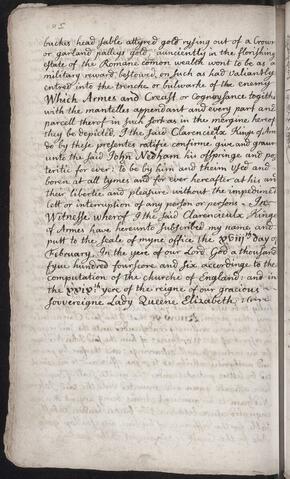 buckes head sable attyred gold rysing out of a Crown
or garland palleys gold, aunciently in the florishing
state of the Romane comon wealth wont to be as a
military reward, bestowed on such as had valiantly
entred into the trenche or bulwarke of the enemy
Which Armes and Creast or Cognoysance togeth
with the mantelles appendant and every part and
parcell therof in such sort as in the mergine hereof
they be depicted, I the said Clarencieulx Kinge of Arm
do by these presentes ratifie confirme, give and graun
unto the said John Nedham his offspringe and po
teritie for ever, to be by him and theim used and
boren at all tymes and for ever hereafter at his an
their libertie and pleasure without the impedimen
lett or interruption of any person or persons. In
Witnesse wherof I the said Clarencieulx Kinge
of Armes have hereunto Subscribed my name and
putt to the Seale of myne office the XVIIIth Day of
February. In the yere of our Lord God a thousand
fyve hundred fourscore and six accordinge to the
computation of the churche of England: and in
the XXIXth yere of the reigne of our gracious
Sovvereigne Lady Queene Elizabeth